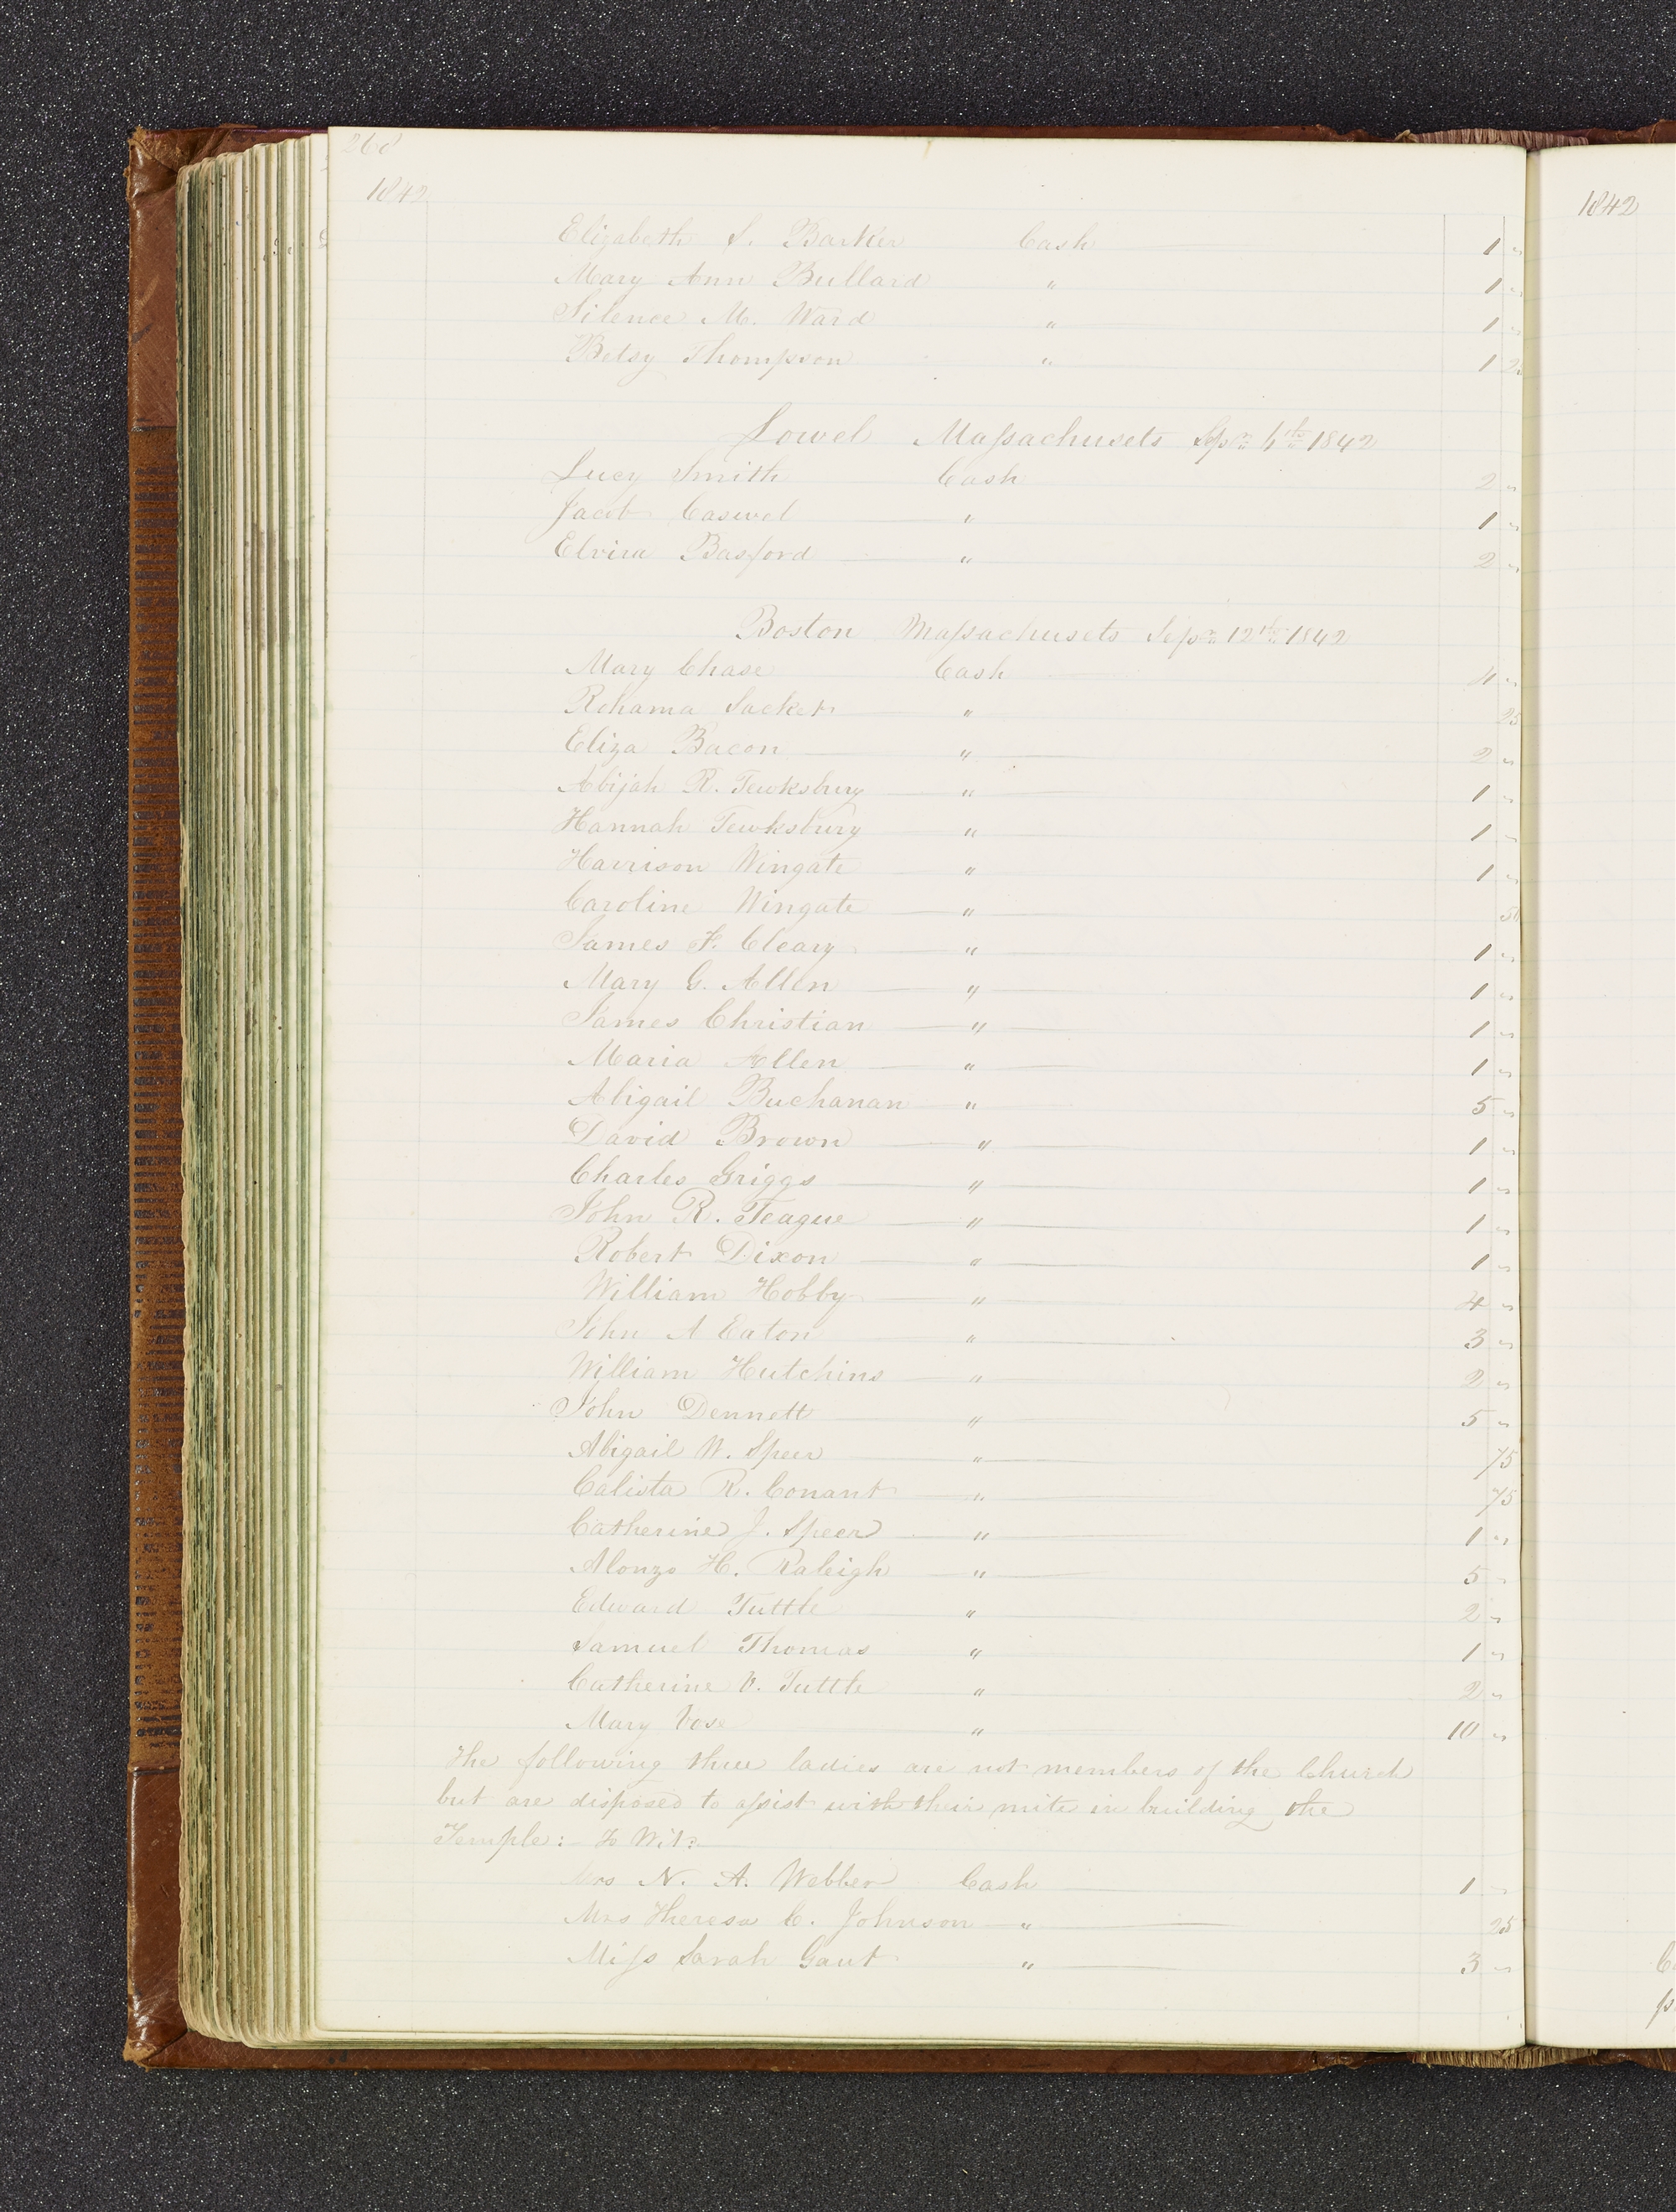 268
1842
Elizabeth S. Barker Cash 1 "
Mary Ann Bullard " 1 "
Silence M. Ward " 1 "
Betsy Thompson " 1
Lowel Massachusets Sepr. 1842
Lucy Smith Cash 2 "
Jacob Caswel " 1 "
Elvira Basford " 2 "
Boston Massachusets Sepr. 12th. 1842
Mary Chase Cash 4 "
Rohama Sacket " 25
Eliza Bacon " 2 "
Abijah R. Tewksbury " 1 "
Hannah Tewksbury " 1 "
Harrison Wingate " 1 "
Caroline Wingate " 50
James F. Cleary " 1 "
Mary G. Allen " 1 "
James Christian " 1 "
Maria Allen " 1 "
Abigail Buchanan " 5 "
David Brown " 1 "
Charles Griggs " 1 "
John R. Teague " 1 "
Robert Dixon " 1 "
William Hobby " 4 "
John A Eaton " 3 "
William Hutchins " 2 "
John Dennett " 5 "
Abigail W. Speer " 75
Calista R. Conant " 75
Catherine J. Speer " 1 "
Alonzo H. Raleigh " 5 "
Edward Tuttle " 2 "
Samuel Thomas " 1 "
Catherine V. Tuttle " 2 "
Mary Vose " 10 "
The following three ladies are not members of the Church
but are disposed to assist with their mite in building the
Temple:- To Wit:
Mrs N. A. Webber Cash 1 "
Mrs Theresa C. Johnson " 25
Miss Sarah Gaut " 3 "
1842